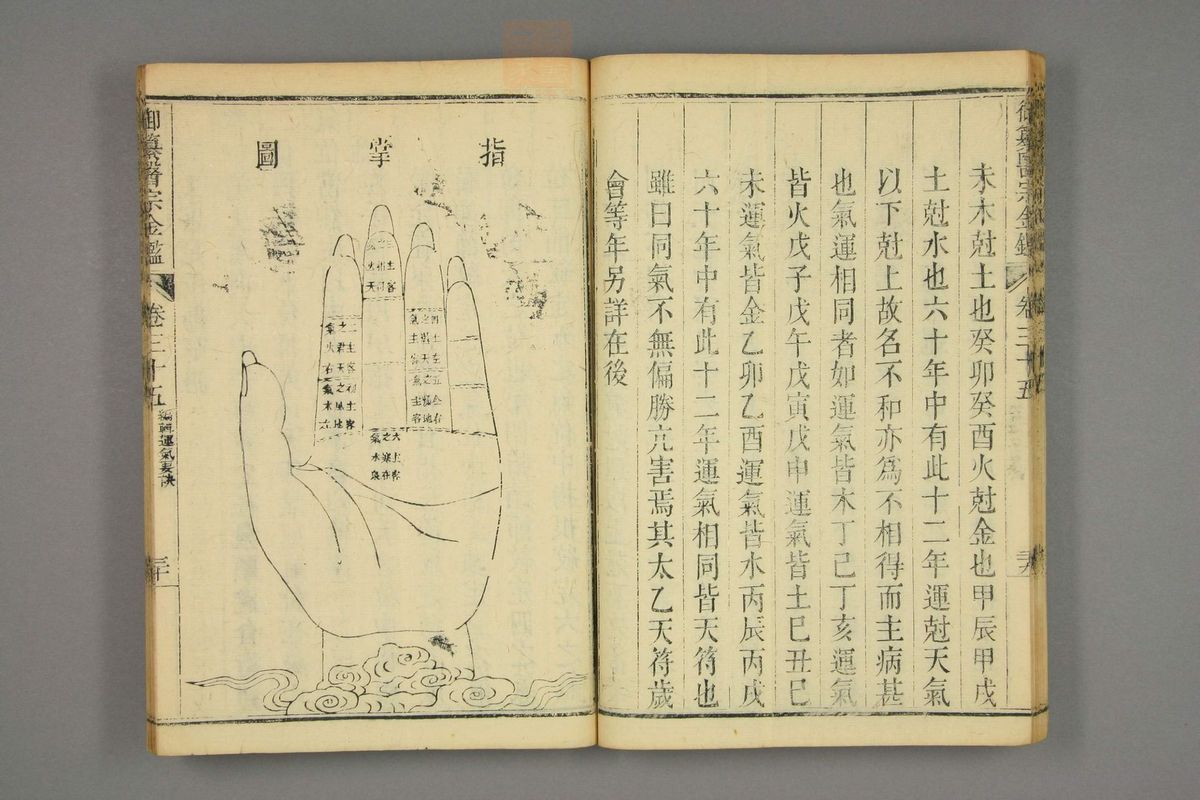 未木尅土也癸卯癸酉火尅金也甲辰甲戌
土尅水也六十年中有此十二年運尅天氣
以下尅上故名不和亦為不相得而主病甚
也氣運相同者如運氣皆木丁巳丁亥運氣
皆火戊子戊午戊寅戊申運氣皆土己丑己
未運氣皆金乙卯乙酉運氣皆水丙辰丙戌
六十年中有此十二年運氣相同皆天符也
雖曰同氣不無偏勝亢害焉其太乙天符歲
會等年另詳在後
指掌圖
四之氣
主土客在
五之氣
主金客在
二之氣
主君火客
初之氣
主
六之氣
主水客在泉
御纂醫宗金鑑
卷三十五
編輯運氣要訣
三十